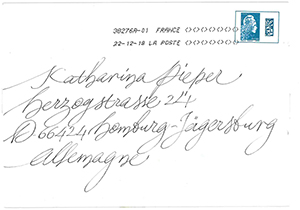 38276A-01 FRANCE
22-12-18 LA POSTE
Katharina Pieper
Herzogstrasse 24
D 66424 Homburg-Jägersburg
Allemagne